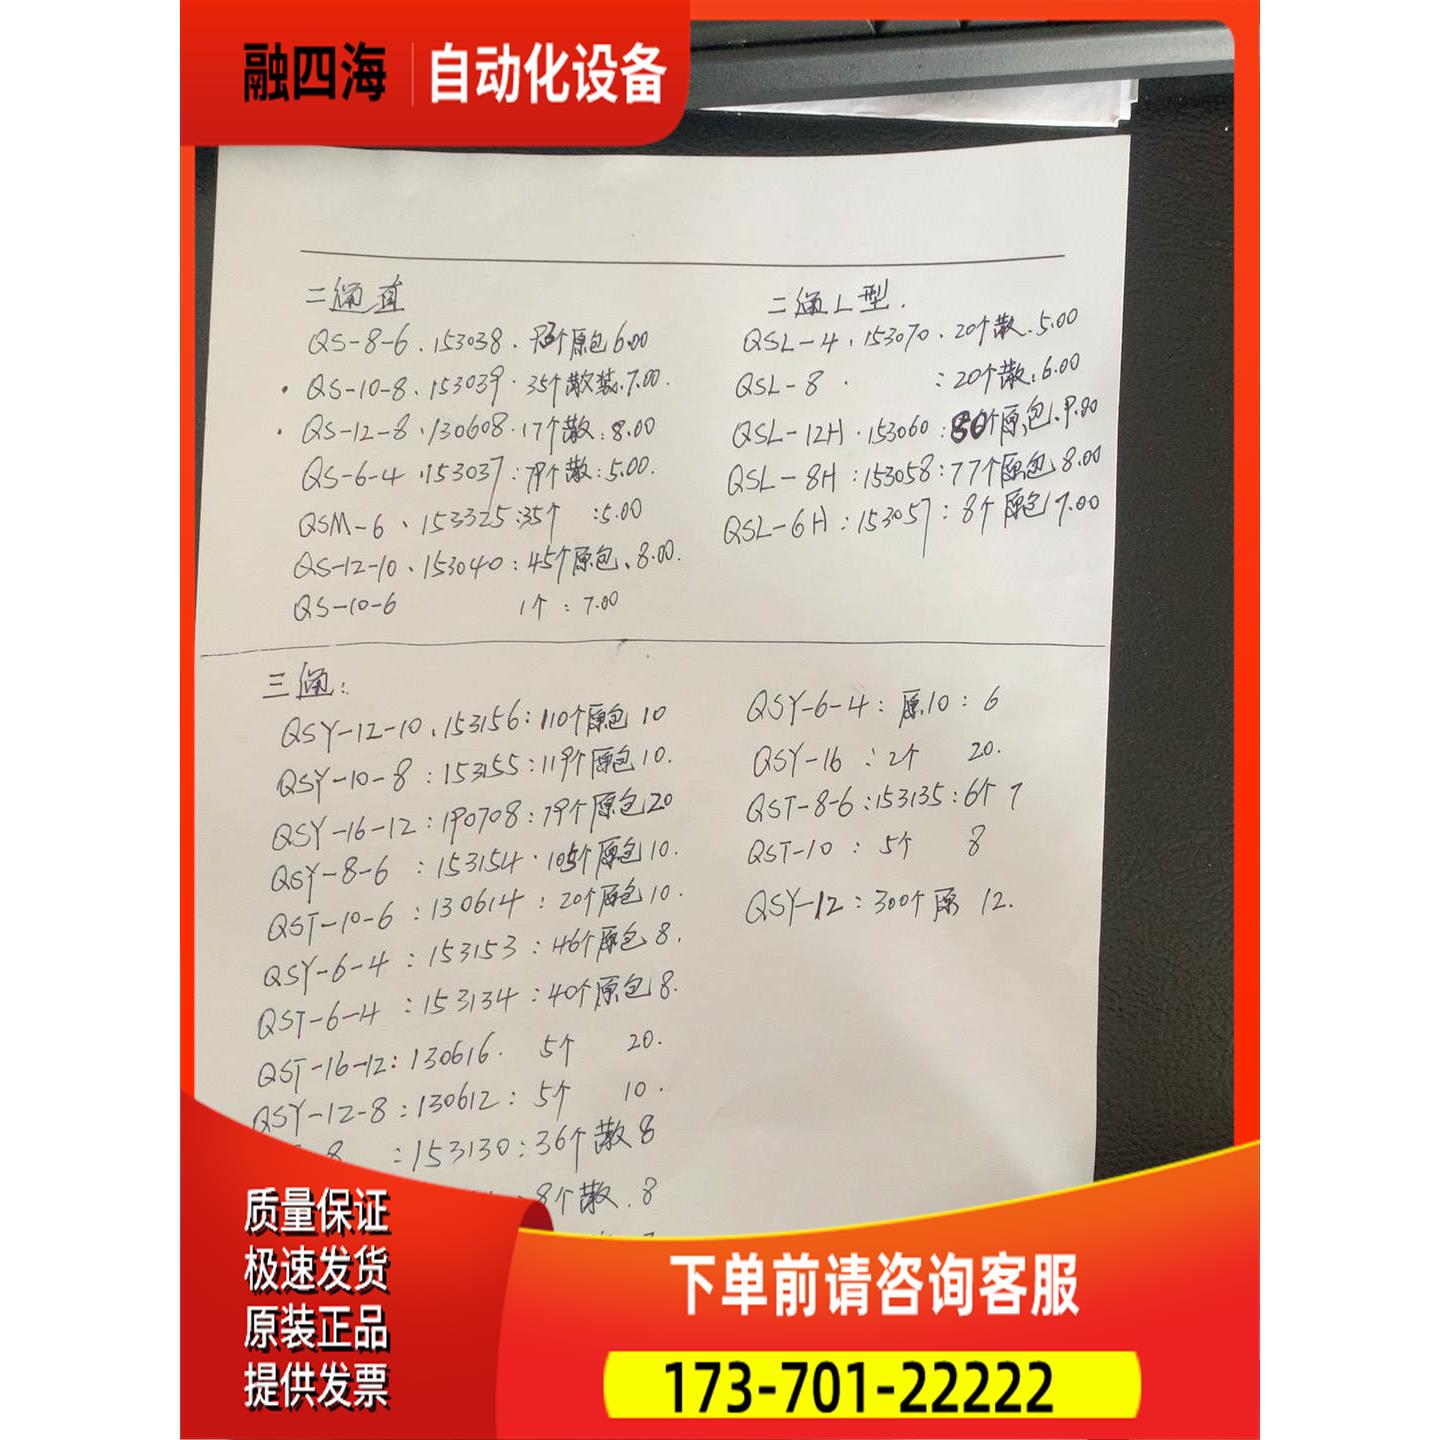 融四海 自动化设备
二通直
QS-8-6、153038. 个原包6.00
· QS-10-8、153039. 35个散装.7.00.
· QS-12-8.130608.17个散:8.00
QS-6-4.153037:79个散:5.00.
QSM-6、153325:35个 :5.00
QS-12-10、153040:45个原包、8.00.
QS-10-6 1个:7.00
二通L型.
QSL-4、153070.20个散.5.00
QSL-8. :20个散:6.00
QSL-12H.153060:80个原包.9.00
QSL-8H:153058:77个原包8.00
QSL-6H:153057:8个原包7.00
三通:
QSY-12-10、153156:110个原包10
QSY-10-8:153155:119个原包10.
QSY-16-12:190708:79个原包20
QSY-8-6:153154.105个原包10.
QST-10-6:130614:20个原包10.
QSY-6-4:153153:46个原包8.
QST-6-4:153134:40个原包8.
QST-16-12:130616. 5个 20.
QSY-12-8:130612:5个 10.
8 :153130:36个散8
8个散.8
QSY-6-4:原10:6
QSY-16:2个 20.
QST-8-6:153135:6个 7
QST-10:5个 8
QSY-12:300个原 12.
质量保证
极速发货
原装正品
提供发票
下单前请咨询客服
173-701-22222